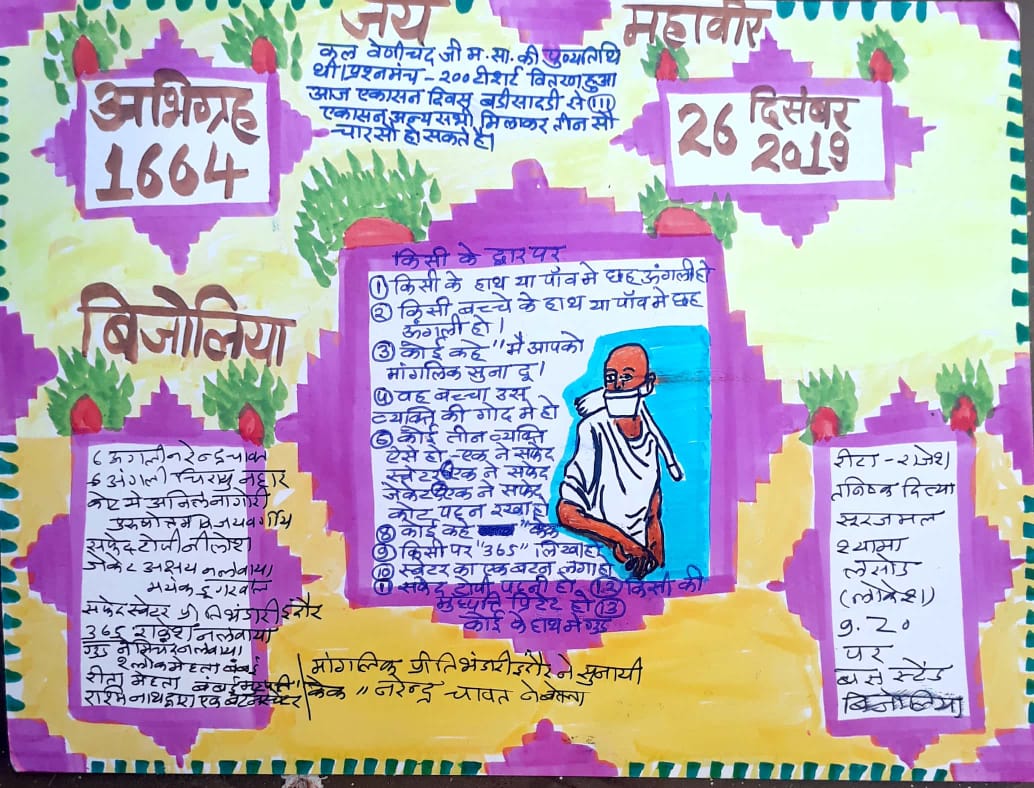 जय महावीर
कल वेणीचंद जी म.सा. की पुण्यतिथि
थी। प्रश्नमंच - २०० टीशर्ट वितरण हुआ
आज एकासन दिवस बडीसादडी से (111)
एकासन अन्य सभी मिलाकर तीन सौ
चारसौ हो सकते है।
अभिग्रह
1664
26 दिसंबर
2019
बिजोलिया
किसी के द्वार पर
① किसी के हाथ या पाँव मे छह ऊंगली हो
② किसी बच्चे के हाथ या पाँव मे छह
ऊंगली हो।
③ कोई कहे "मै आपको
मांगलिक सुना दू।
④ वह बच्चा उस
व्यक्ति की गोद मे हो
⑤ कोई तीन व्यक्ति
ऐसे हो - एक ने सफेद
स्वेटर ⑥ एक ने सफेद
जेकेट ⑦ एक ने सफेद
कोट पहन रखा हो
⑧ कोई कहे "केक
⑨ किसी पर "365" लिखा हो
⑩ स्वेटर का एक बटन लगा हो
⑪ सफेद टोपी पहनी हो ⑫ किसी की
प्रिंटेट हो ⑬
कोई के हाथ मे गुड
6 अंगली नरेन्द्र चावत
6 अंगली चिरायु नाहार
कोट मे अनिल नागोरी
पुरुषोत्तम विजयवर्गीय
सफेद टोपी नीलेश
जेकेट अक्षय नलवाया
मयंक अगरवाल
सफेद स्वेटर प्रीति भंडारी इंदौर
365 राकेश नलवाया
गुड नलवाया
श्लोक मेहता बंबई
रीता मेहता बंबई
रश्मि नाथद्वारा एक बटन स्वेटर
मांगलिक प्रीति भंडारी इंदौर ने सुनायी
केक" नरेन्द्र चावत ने
रीटा - राजेश
तनिष्क दित्या
सूरजमल
श्यामा
लसोड
(लोकेश)
9.20
पर
बस स्टैंड
बिजोलिया